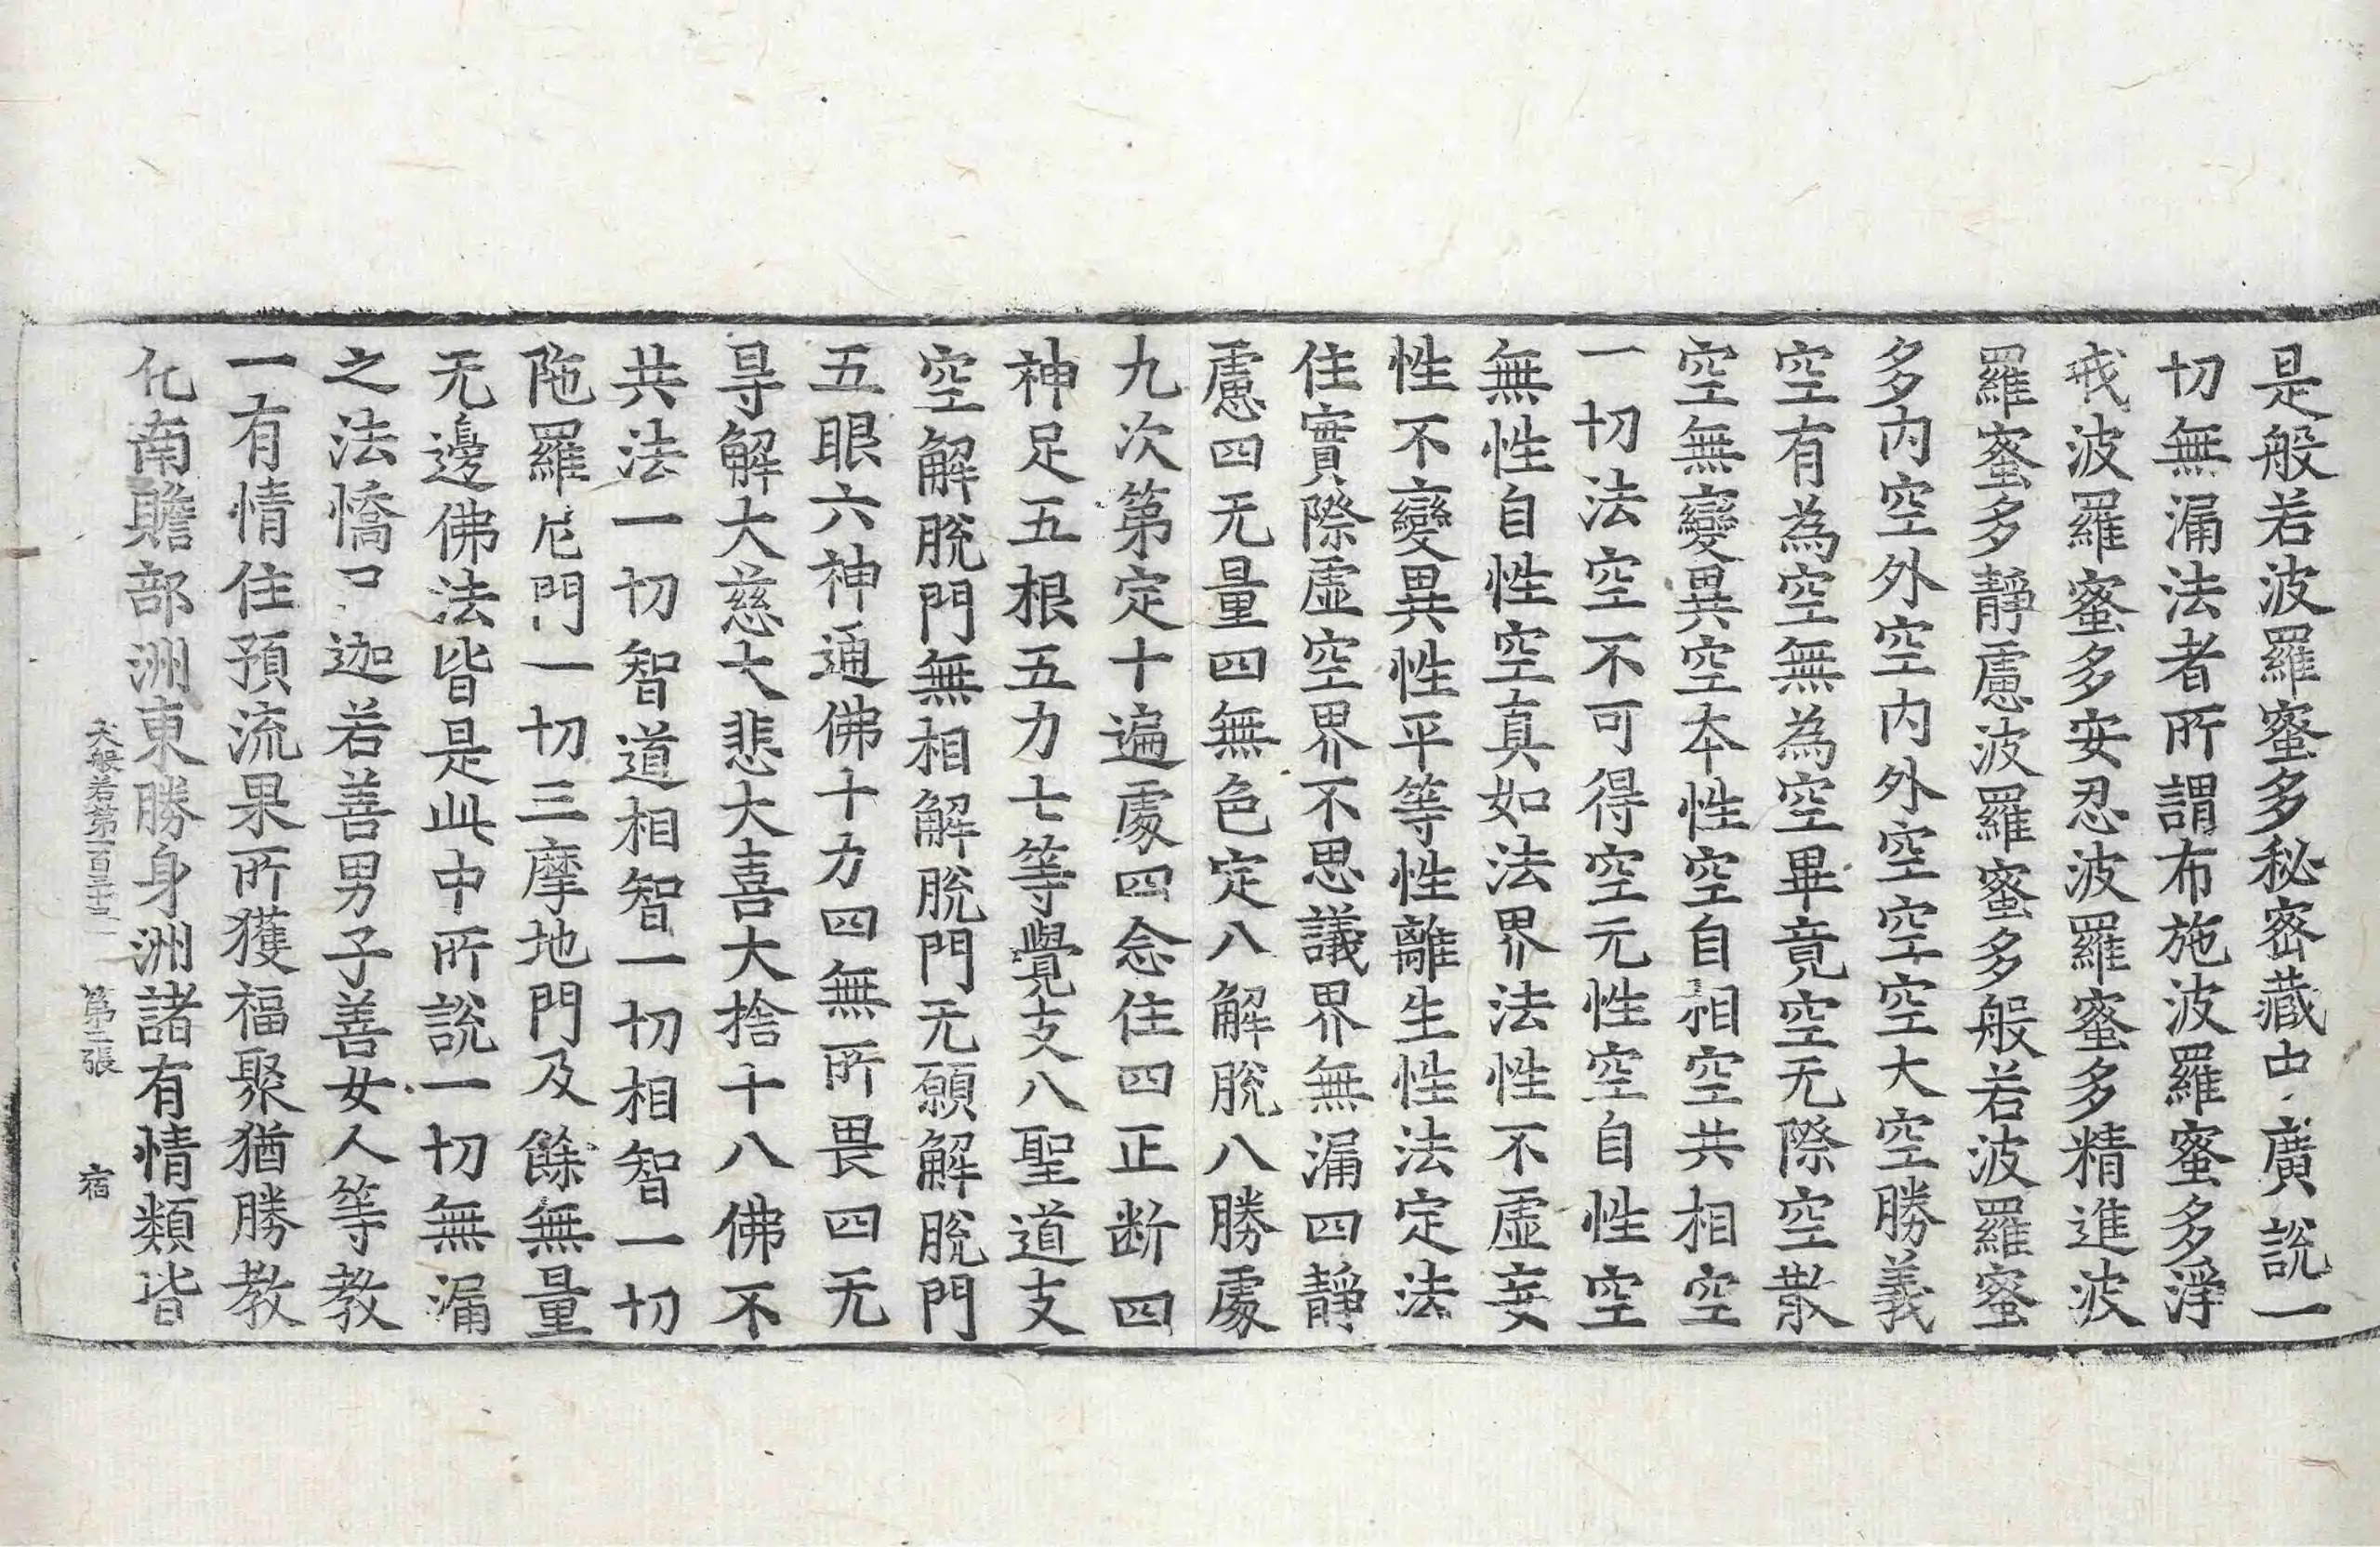 是般若波羅蜜多秘密藏中廣說一
切無漏法者所謂布施波羅蜜多淨
戒波羅蜜多安忍波羅蜜多精進波
羅蜜多靜慮波羅蜜多般若波羅蜜
多內空外空內外空空空大空勝義
空有為空無為空畢竟空无際空散
空無變異空本性空自相空共相空
一切法空不可得空无性空自性空
無性自性空真如法界法性不虛妄
性不變異性平等性離生性法定法
住實際虛空界不思議界無漏四靜
慮四无量四無色定八解脫八勝處
九次第定十遍處四念住四正断四
神足五根五力七等覺支八聖道支
空解脫門無相解脫門无願解脫門
五眼六神通佛十力四無所畏四无
㝵解大慈大悲大喜大捨十八佛不
共法一切智道相智一切相智一切
陁羅尼門一切三摩地門及餘無量
无邊佛法皆是此中所說一切無漏
之法憍尸迦若善男子善女人等教
一有情住預流果所獲福聚猶勝教
化南贍部洲東勝身洲諸有情類皆
大般若第一百三十 第二張 宿